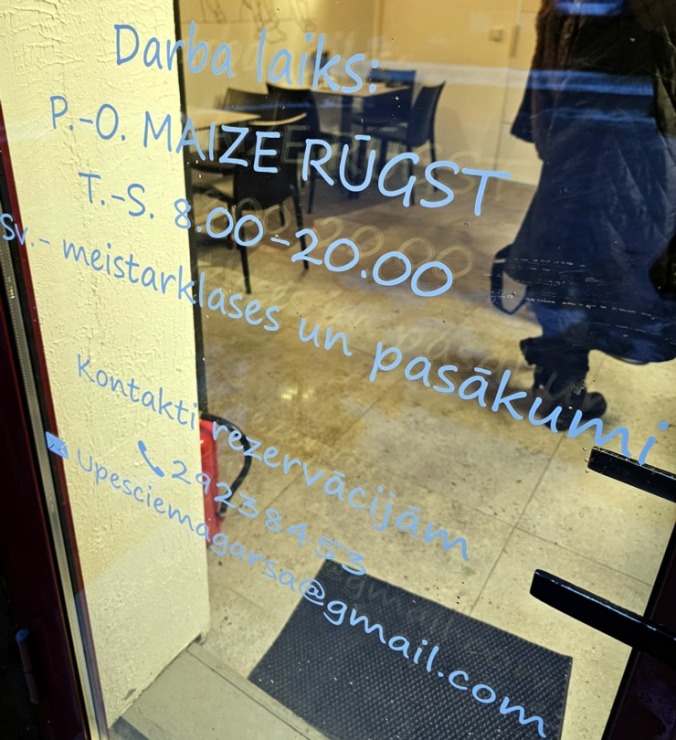 Darba laiks:
P.-O. MAIZE RŪGST
T.-S. 8.00-20.00
Sv.- meistarklases un pasākumi
Kontakti rezervācijām
29238453
Upesciemagarsa@gmail.com